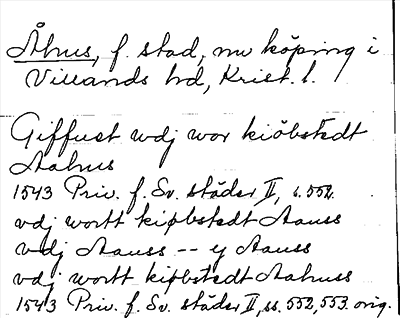 Åhus, f. stad, nu köping i
Villands hd, Krist. l.
Giffuet udj wor kiöbstedt
Aahus
1543 Priv. f. Sv. städer II, s. 552.
vdj wortt kiøbstedt Aauss
vdj Aauss -- y Aauss
vdj wortt kiøbstedt Aahuss
1543 Priv. f. Sv. städer II, ss. 552, 553. orig.